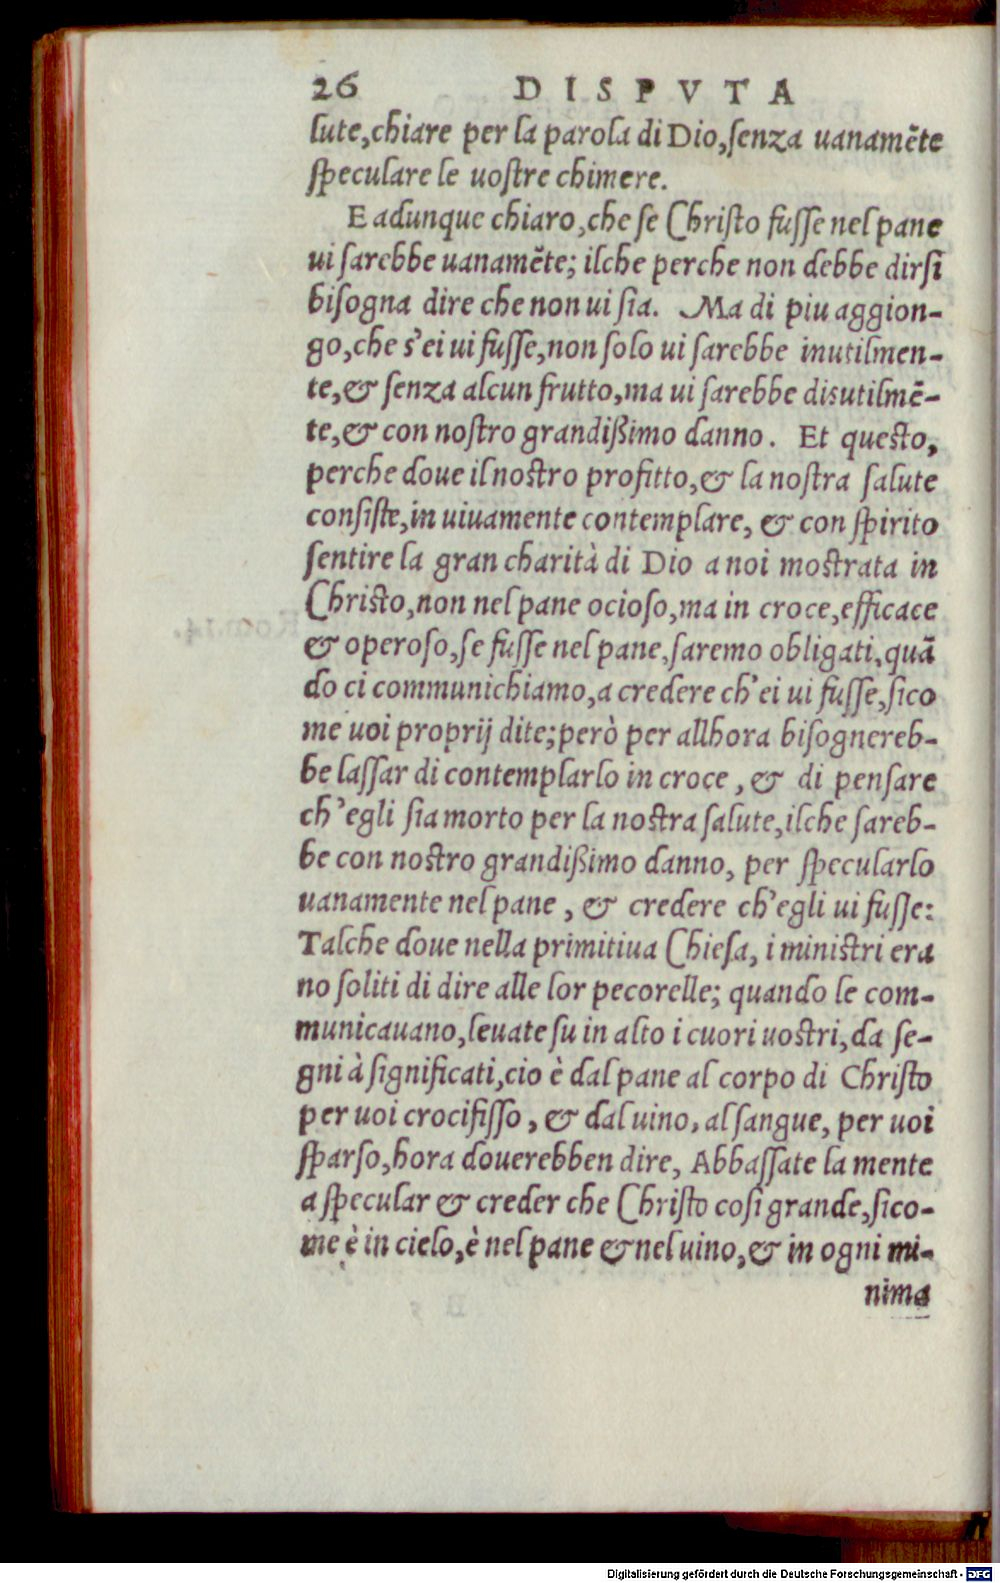 26 DISPVTA
lute, chiare per la parola di Dio, senza uanamẽte
speculare le uostre chimere.
E adunque chiaro, che se Christo fusse nel pane
ui sarebbe uanamẽte; ilche perche non debbe dirsi
bisogna dire che non ui sia. Ma di piu aggion-
go, che s'ei ui fusse, non solo ui sarebbe inutilmen-
te, & senza alcun frutto, ma ui sarebbe disutilmẽ-
te, & con nostro grandißimo danno. Et questo,
perche doue il nostro profitto, & la nostra salute
consiste, in uiuamente contemplare, & con spirito
sentire la gran charità di Dio a noi mostrata in
Christo, non nel pane ocioso, ma in croce, efficace
& operoso, se fusse nel pane, saremo obligati, quã
do ci communichiamo, a credere ch'ei ui fusse, sico
me uoi proprij dite; però per allhora bisognereb-
be lassar di contemplarlo in croce, & di pensare
ch'egli sia morto per la nostra salute, ilche sareb-
be con nostro grandißimo danno, per specularlo
uanamente nel pane, & credere ch'egli ui fusse:
Talche doue nella primitiua Chiesa, i ministri era
no soliti di dire alle lor pecorelle; quando le com-
municauano, leuate su in alto i cuori uostri, da se-
gni à significati, cio è dal pane al corpo di Christo
per uoi crocifisso, & dal uino, al sangue, per uoi
sparso, hora douerebben dire, Abbassate la mente
a specular & creder che Christo cosi grande, sico-
me è in cielo, è nel pane & nel uino, & in ogni mi-
nima
Digitalisierung gefördert durch die Deutsche Forschungsgemeinschaft - DFG